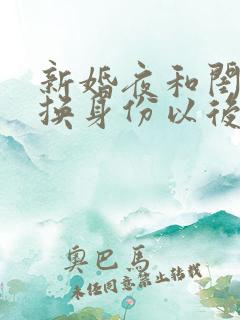 新婚夜和閨
換身份以後
奧巴馬
未經同意禁止轉載